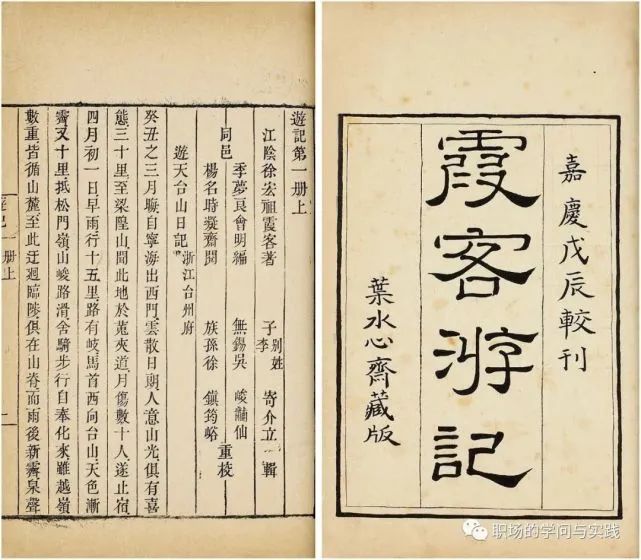 嘉慶戊辰較刊
霞客游記
葉水心齋藏版
遊記第一册上
江陰徐宏祖霞客著 子李別姓 寄介立輯
季夢良會明編 無錫吳 峻 仙
同邑 重校
楊名時凝齋閱 族孫徐 鎭筠峪
遊天台山日記 浙江台州府
癸丑之三月晦自寧海出西門雲散日朗人意山光俱有喜
態三十里至梁隍山聞此地於菟夾道月傷數十人遂止宿
四月初一日早雨行十五里路有岐馬首西向台山天色漸
霽又十里抵松門嶺山峻路滑舍騎步行自奉化來雖越嶺
數重皆循山麓至此迂迴臨陟俱在山脊而雨後新霽泉聲
册上
职场的学问与实践